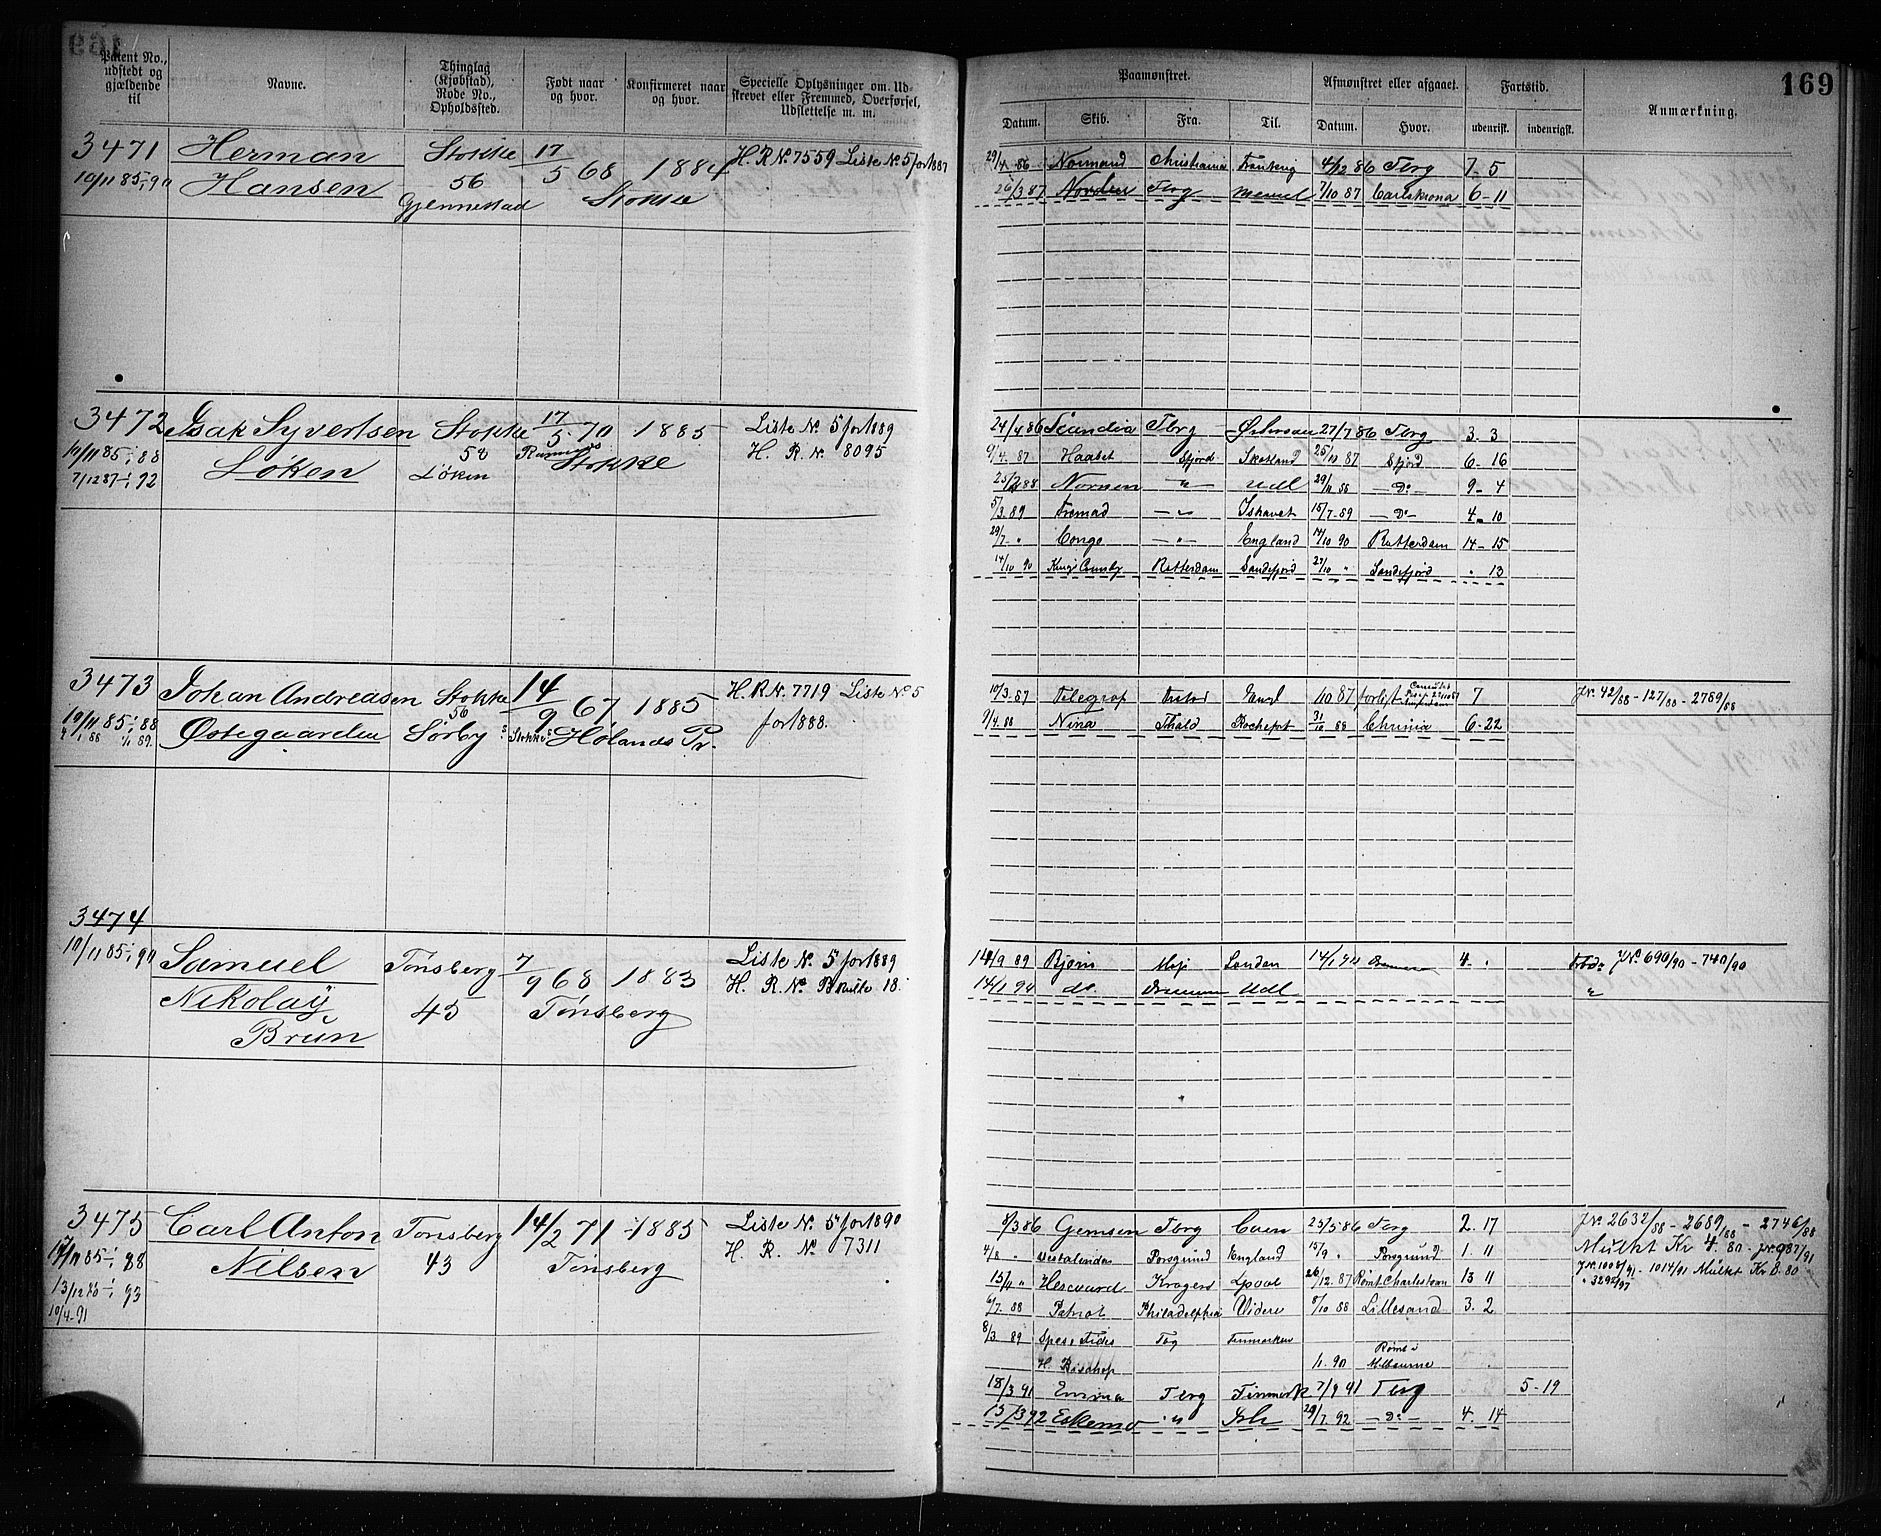 169
Patent No., udstedt og gjældende til
Navne.
Thinglag (Kjøbstad), Rode No., Opholdssted.
Født naar og hvor.
Konfirmeret naar og hvor.
Specielle Oplysninger om Udskrevet eller Fremmed, Overførsel, Udslettelse m. m.
Paamønstret.
Afmønstret eller afgaaet.
Fartstid.
Anmærkning.
Datum. Skib. Fra. Til. Datum. Hvor. udenrigsk. indenrigsk.
3471 Herman Stokke 17/5 68 1884 H. R. N. 7559 Liste No 5 for 1887
10/11 85 - 1/1 90 Hansen 56 Stokke
Gjennestad
29/4 86 Normand Christiania 4/12 86 Tbrg 7. 5
26/3 87 Norden Tbrg Memel 7/10 87 Carlskrona 6 - 11
3472 Isak Syvertsen Stokke 17/5 70 1885 Liste No. 5 for 1889
10/11 85 - 1/1 88 Løken 58 Stokke H. R. No. 8095
7/12 87 - 1/1 92 Løken
24/4 86 Scandia Tbrg 27/7 86 Tbrg 3. 3
9/4. 87 Haabet Sfjord Skotland 25/10 87 Sfjord 6 - 16
25/2 88 Nornen - " - Udl 29/11 88 - Do - 9 - 4
5/3. 89 Fremad - " - Ishavet 15/7. 89 - Do - 4 - 10
29/7 " Congo - " - England 14/10 90 Rotterdam 14 - 15
14/10 90 Rotterdam Sandefjord 27/10 " Sandefjord " 13
3473 Johan Andreasen Stokke 14/9 67 1885 H. R. N. 7719 Liste No 5
10/11 85 - 1/1 88 Østegaarden 56 Sørby Stokke Hølands Pr. for 1888.
10/3. 87 Telegraf 10 87 forlist 7 J.No. 42/88 - 127/88 - 2789/88
9/4. 88 Nina Thald Rochefort 31/10 88 Chrnia 6. 22
3474
10/11 85 - 1/1 90 Samuel Tønsberg 7/9 68 1883 Liste No. 5 for 1889
Nikolaÿ 45 Tønsberg H. R. No. 18
Brun
14/9 89 Bjørn London 4 - " J.No 690/90 - 740/90
do Udl "
3475 Carl Anton Tønsberg 14/2 71 - 1885 Liste No. 5 for 1890
Nilsen 43 Tønsberg H. R. No 7311
10/11 85 - 1/1 88
10/4 - 91
8/3 86 Gemsen Tbrg Caen 23/5 86 Tbrg 2. 17 J.No. 2632/88 - 2689/88 - 2746/88
4/8 " Porsgrund England 15/9 " Porsgrund 1. 11 Mulkt Kr 4. 80 - J.No 987/91
15/11 " Kragerø 26/12. 87 Rømt Charlestown 13 11 J.No. 1008/91 - 1014/91 Mulkt Kr 8. 80
6/7 88 Patriot Philadelphia Videre 8/10 88 Lillesand 3. 2 " 3292/97
8/3 89 Spes & Fides Tbg Finmarken
H. Bischop 1/1. 90 Rømt i Melbourne
18/3 91 Emma Tbrg Finmark 7/9 91 Tbrg 5 - 19
15/3 92 Eskemo " 29/7. 92 - Do - 4. 14